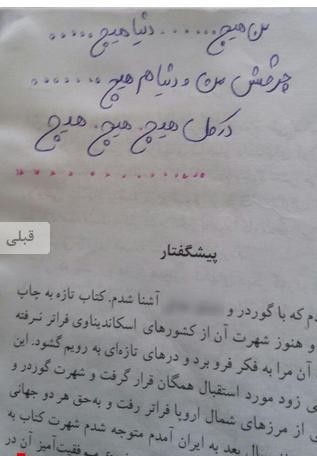 من هیچ...... دنیا هیچ.....
چرخش من و دنیا هم هیچ......
در کل هیچ. هیچ. هیچ
قبلی
پیشگفتار
م که با گوردر و آشنا شدم. کتاب تازه به چاپ
و هنوز شهرت آن از کشورهای اسکاندیناوی فراتر نرفته
آن مرا به فکر فرو برد و درهای تازه‌ای به رویم گشود. این
ی زود مورد استقبال همگان قرار گرفت و شهرت گوردر و
ی از مرزهای شمال اروپا فراتر رفت و به‌حق هر دو جهانی
سال بعد به ایران آمدم متوجه شدم شهرت کتاب به
موفقیت‌آمیز آن در